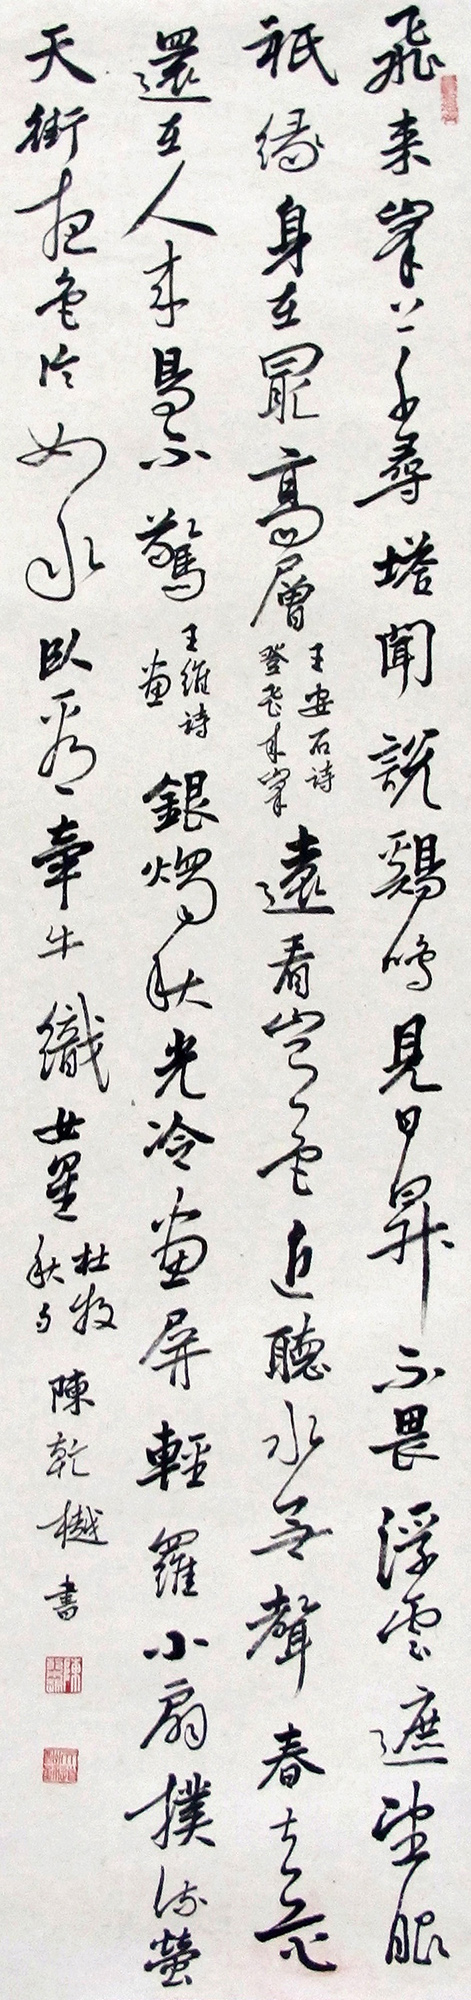 飛来峯上千尋塔聞說鷄鳴見日昇不畏浮雲遮望眼
祇緣身在最高層
王安石诗
登飞来峯
遠看山有色近聽水無聲春去花
還在人来鳥不驚
王維诗
畫
銀燭秋光冷畫屏輕羅小扇撲流螢
天街夜色涼如水卧看牽牛織女星
杜牧
秋夕
陳乾樾書